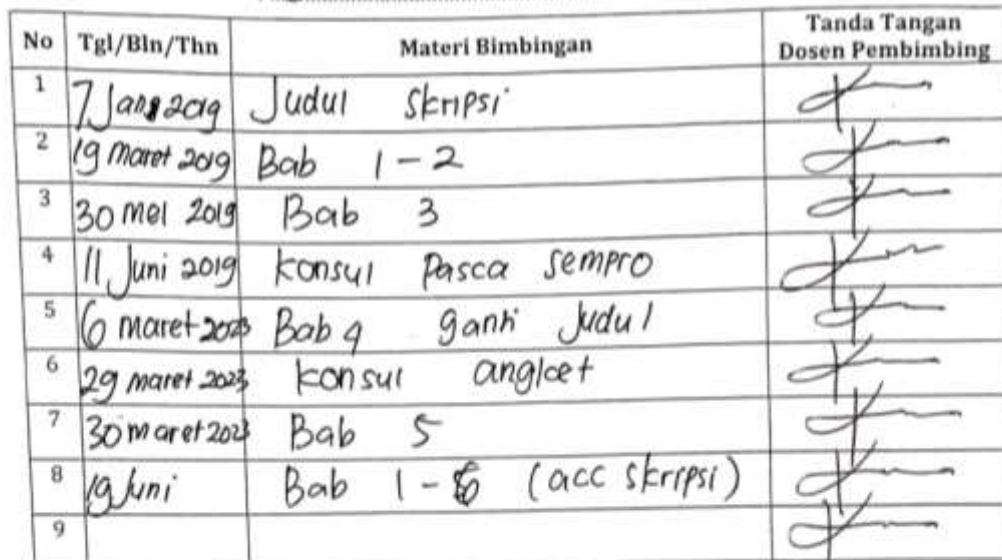 No Tgl/Bln/Thn Materi Bimbingan Tanda Tangan Dosen Pembimbing
1 7 Jan 2019 Judul Skripsi
2 19 maret 2019 Bab 1 - 2
3 30 mei 2019 Bab 3
4 11 Juni 2019 konsul Pasca sempro
5 6 maret 2023 Bab 4 ganti Judul
6 29 maret 2023 konsul angket
7 30 maret 2023 Bab 5
8 19 Juni Bab 1 - 6 (acc skripsi)
9